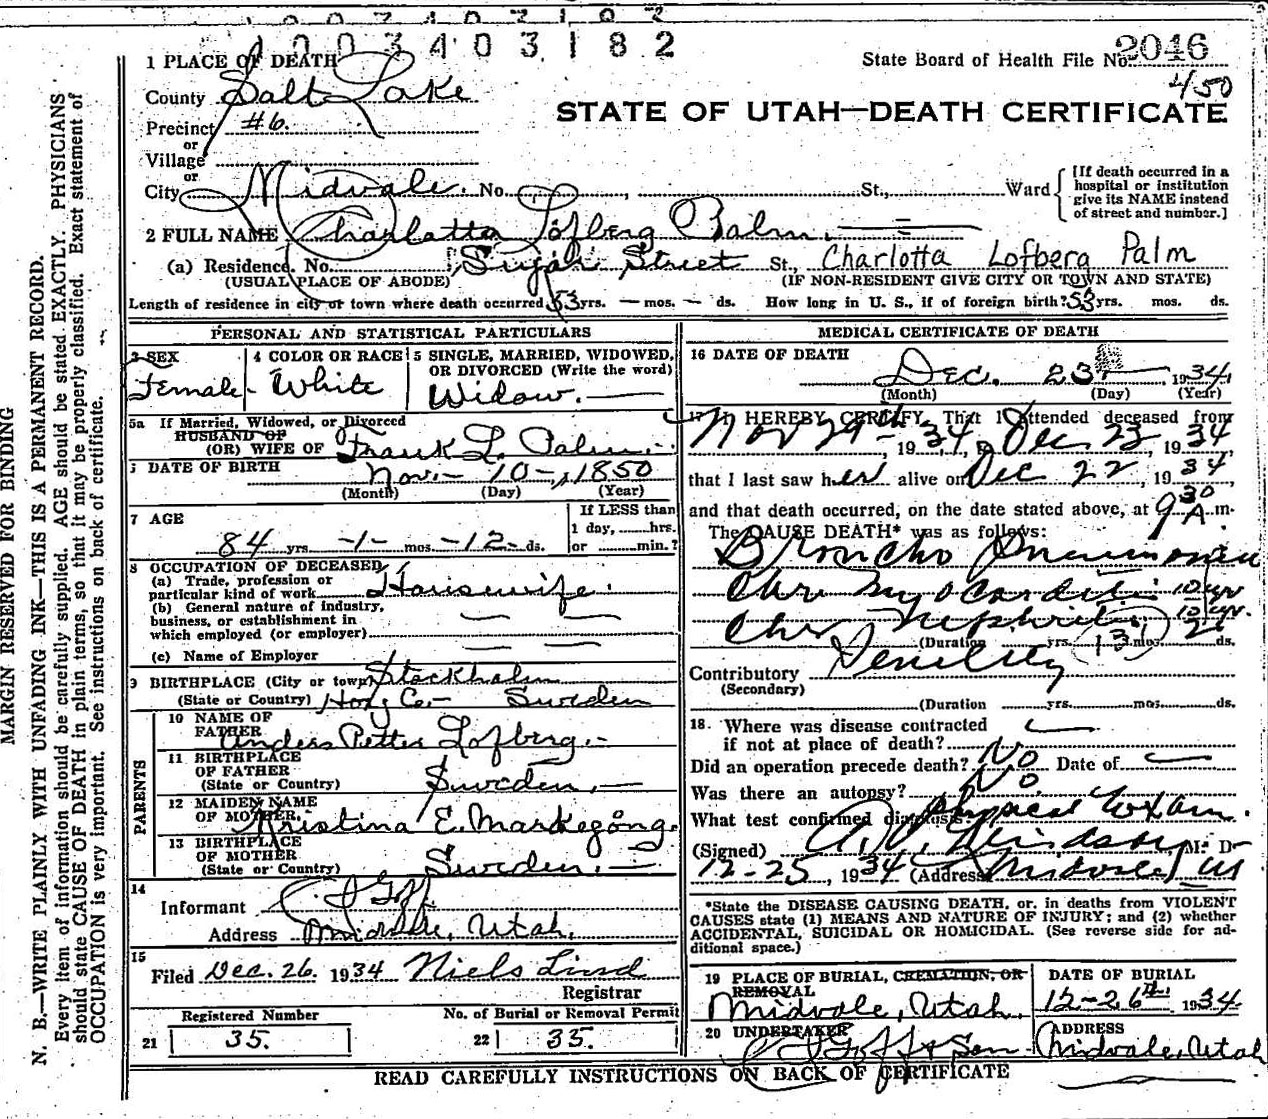 1003403182
State Board of Health File No. 2046
450
STATE OF UTAH—DEATH CERTIFICATE
1 PLACE OF DEATH
County Salt Lake
Precinct #6.
or
Village
or
City Midvale. No. St., Ward
[If death occurred in a hospital or institution give its NAME instead of street and number.]
2 FULL NAME Charlatta Lofberg Palm.
(a) Residence. No. Sugar Street St., Charlotta Lofberg Palm
(USUAL PLACE OF ABODE) (IF NON-RESIDENT GIVE CITY OR TOWN AND STATE)
Length of residence in city or town where death occurred 53 yrs. — mos. — ds. How long in U. S., if of foreign birth? 53 yrs. mos. ds.
PERSONAL AND STATISTICAL PARTICULARS
3 SEX
Female
4 COLOR OR RACE
White
5 SINGLE, MARRIED, WIDOWED, OR DIVORCED (Write the word)
Widow.
5a If Married, Widowed, or Divorced
HUSBAND OF
(OR) WIFE OF Frank L. Palm.
6 DATE OF BIRTH Nov. - 10 -, 1850
(Month) (Day) (Year)
7 AGE
84 yrs. -1- mos. -12- ds.
If LESS than
1 day, hrs.
or min.?
8 OCCUPATION OF DECEASED
(a) Trade, profession or
particular kind of work Housewife.
(b) General nature of industry,
business, or establishment in
which employed (or employer)
(c) Name of Employer
9 BIRTHPLACE (City or town) Stockholm
(State or Country) Sweden
PARENTS
10 NAME OF
FATHER Anders Petter Lofberg.-
11 BIRTHPLACE
OF FATHER
(State or Country) Sweden.
12 MAIDEN NAME
OF MOTHER. Kristina E. Markegöng.
13 BIRTHPLACE
OF MOTHER
(State or Country) Sweden.
14
Informant Goff
Address Midvale, Utah.
15
Filed Dec. 26. 1934 Niels Lind
Registrar
Registered Number
21 35.
No. of Burial or Removal Permit
22 35.
MEDICAL CERTIFICATE OF DEATH
16 DATE OF DEATH
Dec. 23, 1934
(Month) (Day) (Year)
17 I HEREBY CERTIFY, That I attended deceased from
Nov 29th, 1934, to Dec 23, 1934
that I last saw her alive on Dec 22, 1934,
and that death occurred, on the date stated above, at 9 30 A. m.
The CAUSE DEATH* was as follows:
Broncho Pneumonia
Chr Myocarditis 10 yr
Chr Nephritis 10 yr.
(Duration yrs. mos. ds.
Contributory Senility
(Secondary)
(Duration yrs. mos. ds.
18. Where was disease contracted
if not at place of death?
Did an operation precede death? No Date of
Was there an autopsy? No.
What test confirmed diagnosis? physical Exam.
(Signed) M. D.
12-25, 1934 (Address Midvale, Ut
*State the DISEASE CAUSING DEATH, or, in deaths from VIOLENT
CAUSES state (1) MEANS AND NATURE OF INJURY; and (2) whether
ACCIDENTAL, SUICIDAL OR HOMICIDAL. (See reverse side for ad-
ditional space.)
19 PLACE OF BURIAL, CREMATION, OR
REMOVAL
Midvale, Utah.
DATE OF BURIAL
12-26th, 1934.
20 UNDERTAKER
Goff & Son
ADDRESS
Midvale, Utah
READ CAREFULLY INSTRUCTIONS ON BACK OF CERTIFICATE
MARGIN RESERVED FOR BINDING
N. B.—WRITE PLAINLY WITH UNFADING INK—THIS IS A PERMANENT RECORD.
Every item of information should be carefully supplied. AGE should be stated EXACTLY. PHYSICIANS
should state CAUSE OF DEATH in plain terms, so that it may be properly classified. Exact statement of
OCCUPATION is very important. See instructions on back of certificate.